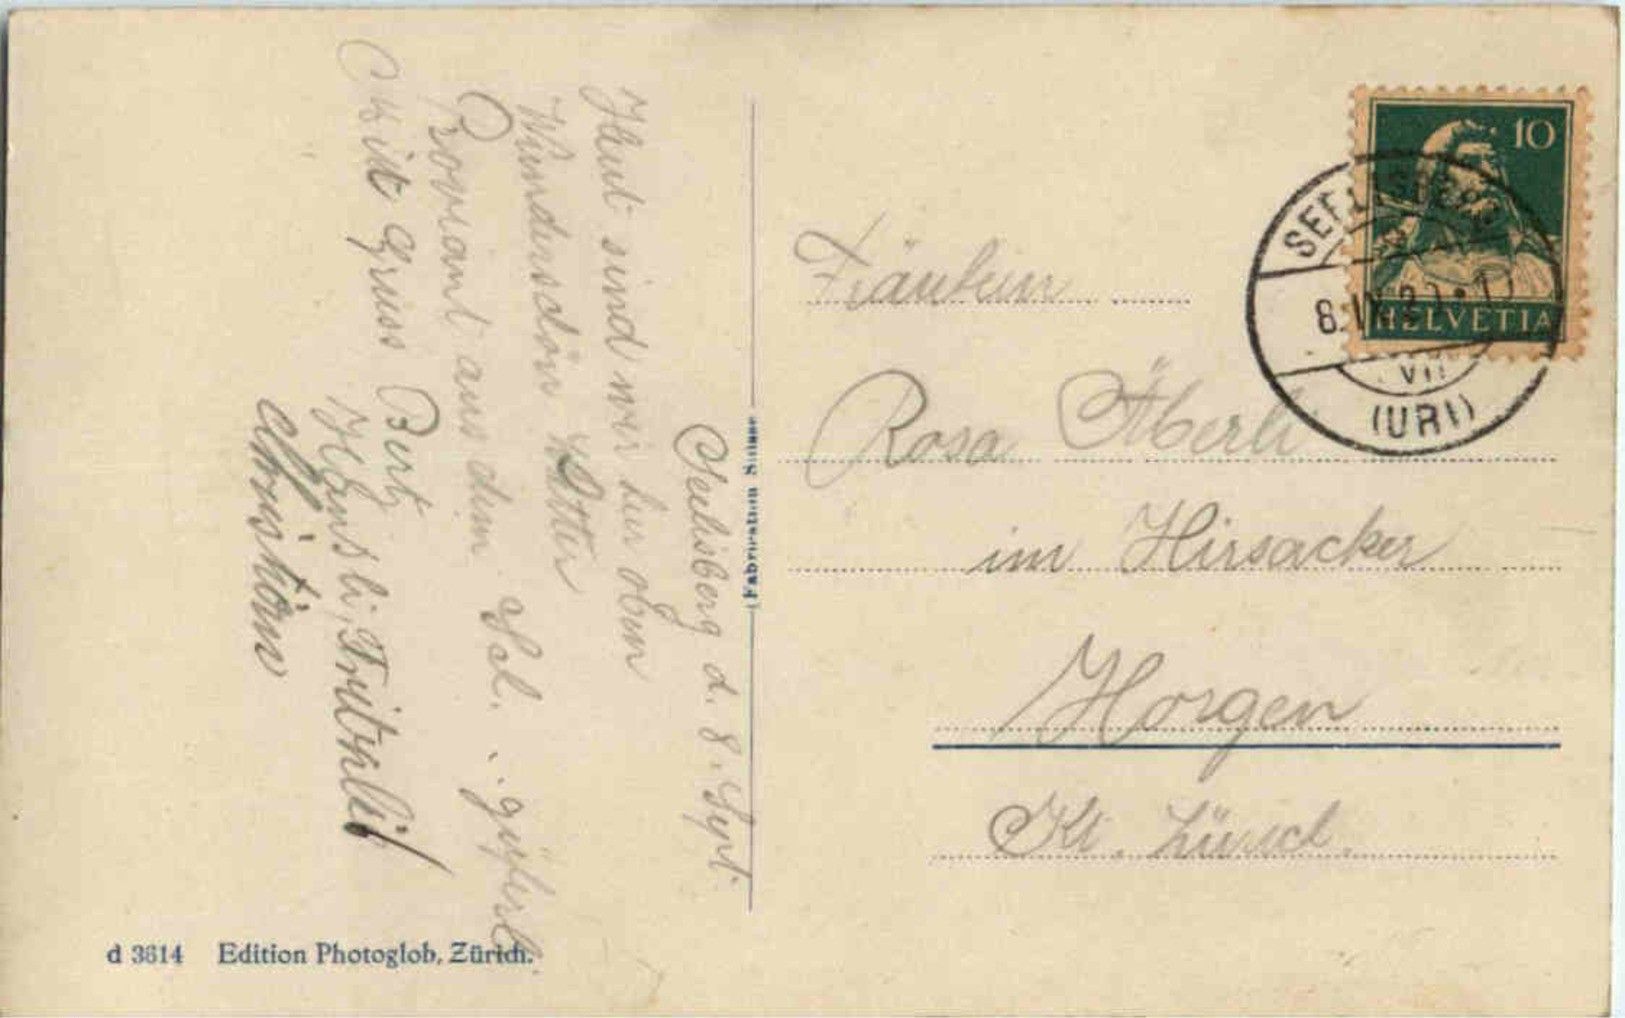 Seelisberg d. 8. Sept.
Heut sind wir hier oben
Wunderschön
Proviant aus dem
Mit Gruss Bert
Hansli,
Christian
(Fabrication Suisse)
10
HELVETIA
SEELISBERG
VII
(URI)
Fräulein
Rosa Äberli
im Hirsacker
Horgen
Kt. Zürich.
d 3614 Edition Photoglob, Zürich.